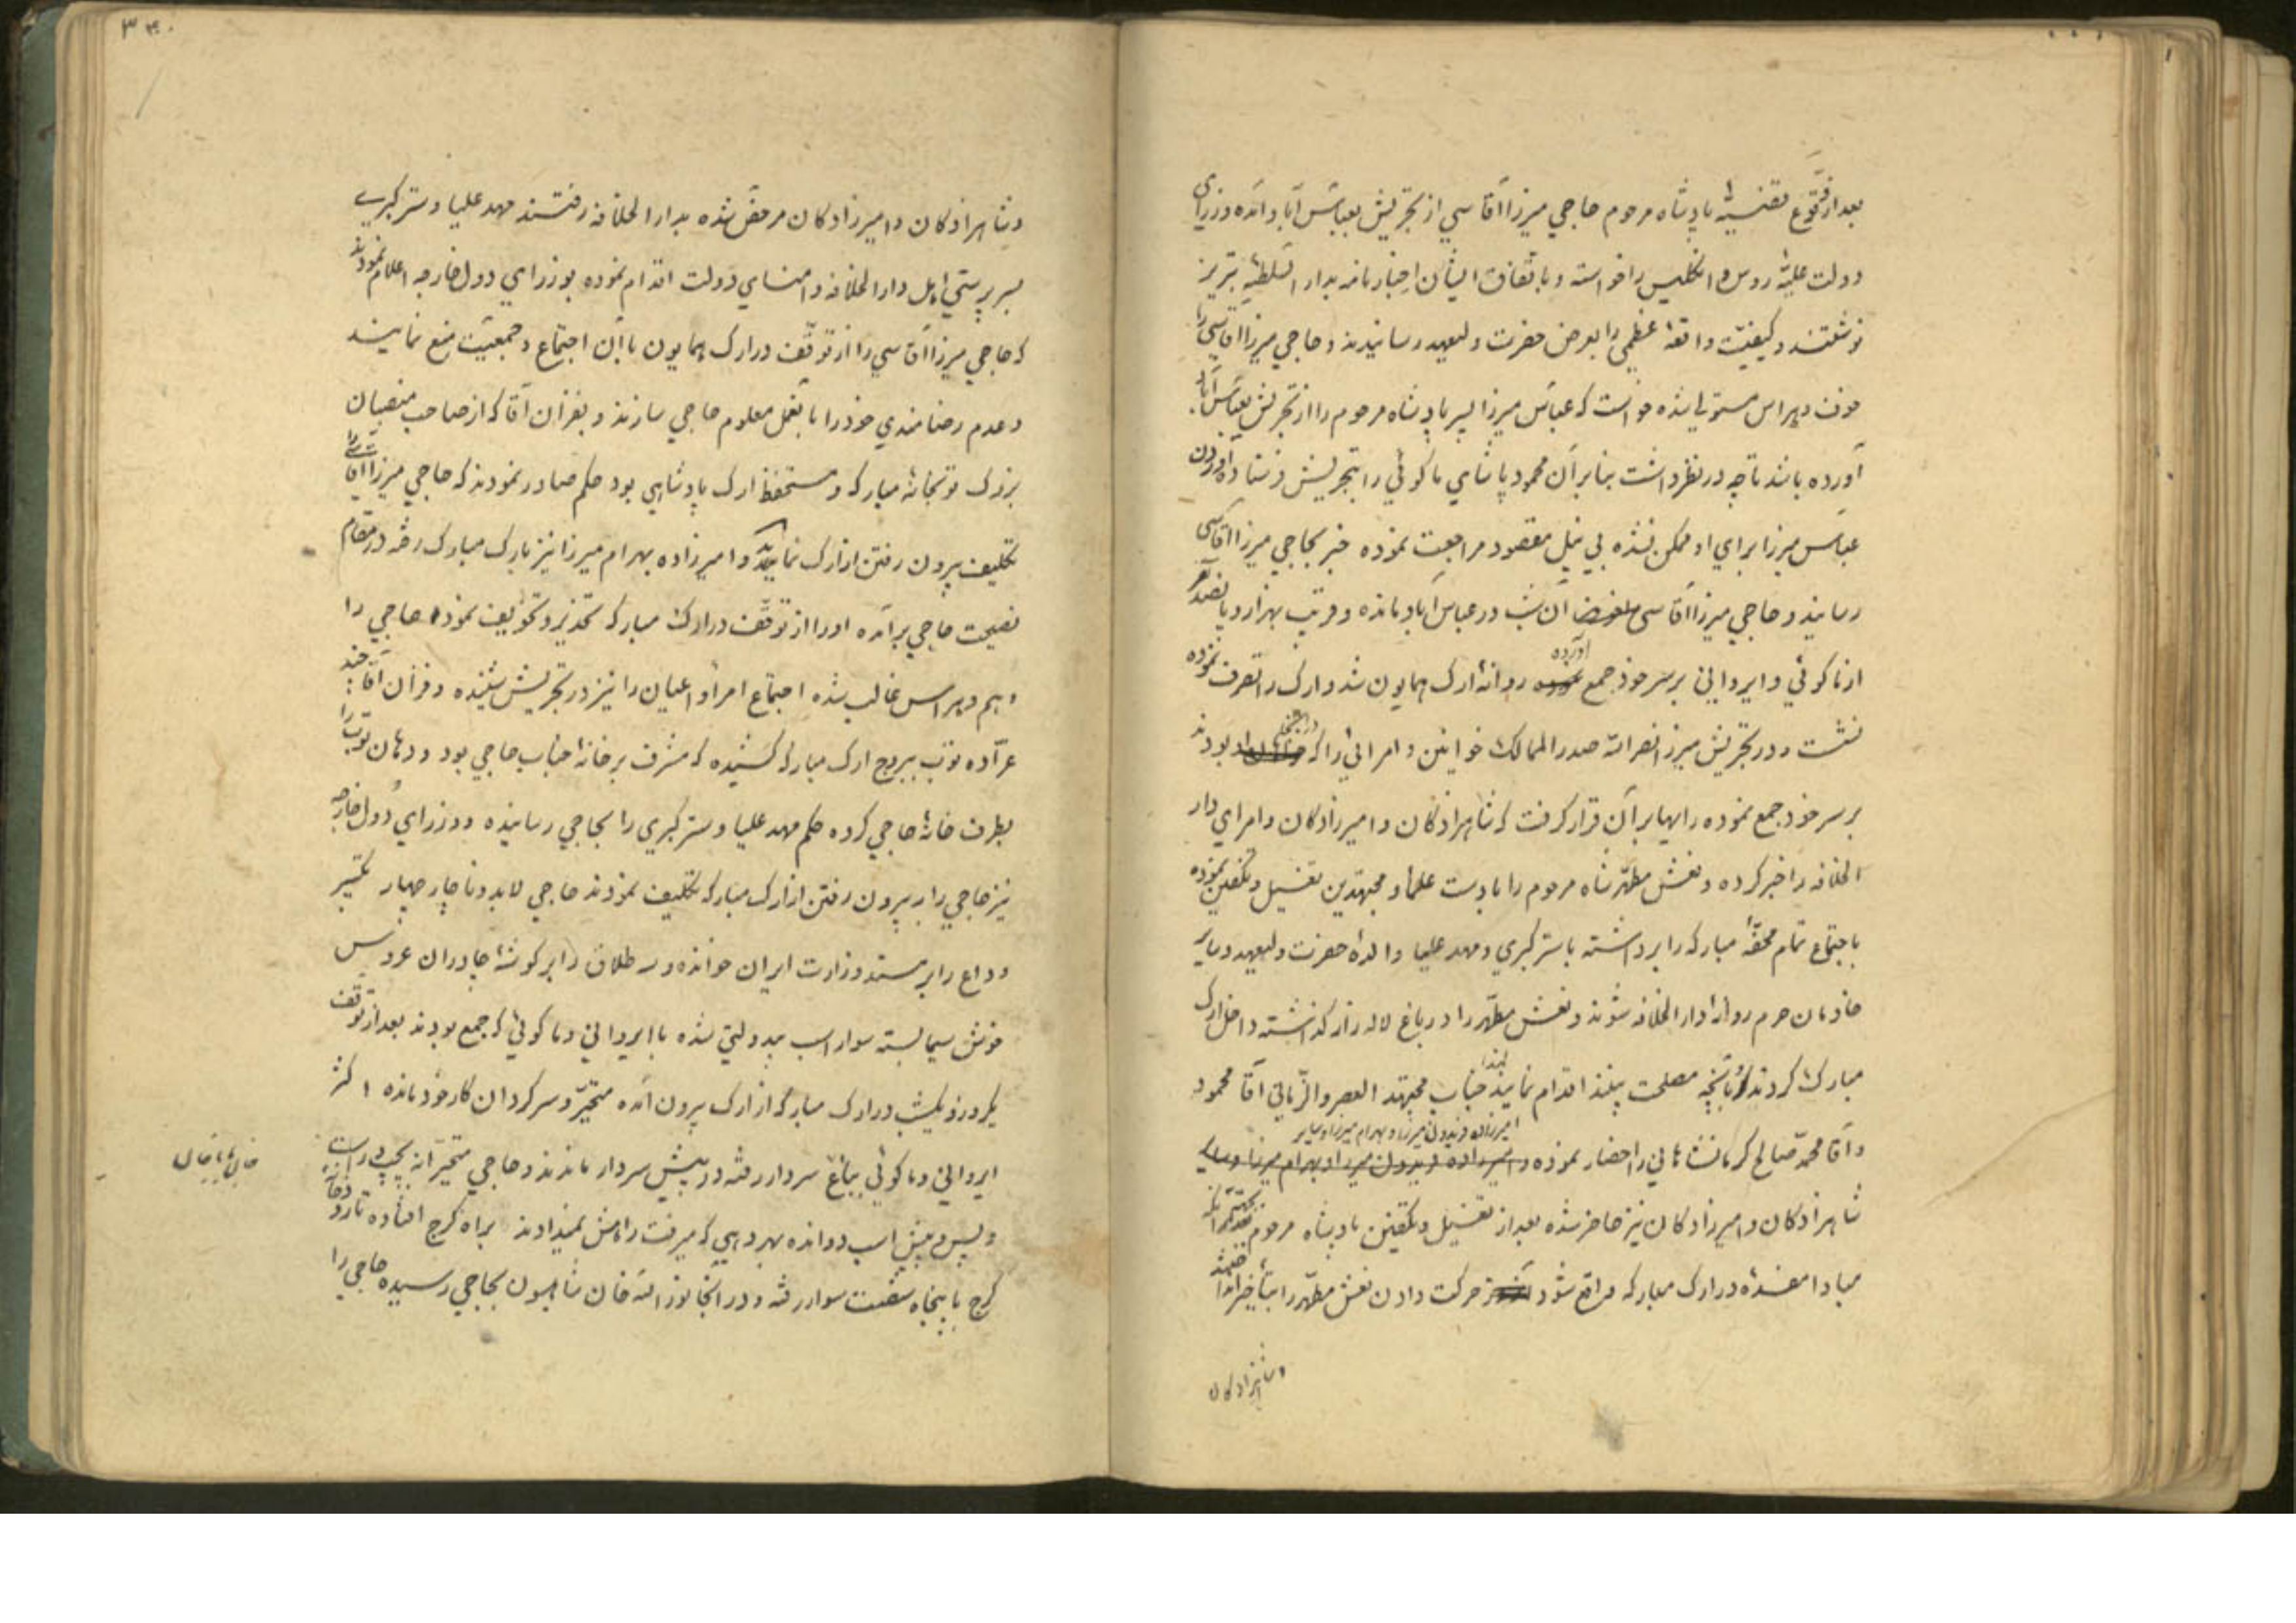 بعد از وقوع قضیهٔ پادشاه مرحوم حاجي میرزا آقاسي از تجریش بعباس آباد آمده وزرای
دولت علیّهٔ روس و انگلیس را خواسته و باتفاق ایشان اخبار نامه بدار السلطنهٔ تبریز
نوشتند و کیفیّت واقعهٔ عظمی را بعرض حضرت ولیعهد رسانیدند و حاجي میرزا آقاسی را
خوف و هراس مستولی شده خواست که عباس میرزا پسر پادشاه مرحوم را از تجریش بعباس آباد
آورده باشد تا چه در نظر داشت بنابر آن محمود پاشاي ماکوئي را بتجریش فرستاد آوردن
عباس میرزا براي او ممکن نشده بي نیل مقصود مراجعت نموده خبر بحاجي میرزا آقاسی
رسانید و حاجي میرزا آقاسی آن شب در عباس آباد مانده و قریب بهزار و پانصد نفر
از ماکوئي و ایرواني بر سر خود جمع آورده روانهٔ ارک همایون شد و ارک را تصرف نموده
نشست و در تجریش میرزا نصر الله صدر الممالک خوانین و امرائي را که در آنجا بودند
بر سر خود جمع نموده رایها بر آن قرار گرفت که شاهزادگان و امیرزادگان و امراي دار
الخلافه را خبر کرده و نعش مطهّر شاه مرحوم را با دست علما و مجتهدین تغسیل و تکفین نموده
باجتماع تمام محفّهٔ مبارکه را برداشته با ستر کبري و مهد علیا والدهٔ حضرت ولیعهد و سایر
خادمان حرم روانهٔ دار الخلافه شوند و نعش مطهّر را در باغ لاله زار گذاشته داخل ارک
مبارک گردند و بآنچه مصلحت بینند اقدام نمایند لهذا جناب مجتهد العصر و الزّماني آقا محمود
و آقا محمّد صالح کرمانشاهاني را احضار نموده امیرزاده فریدون میرزا و بهرام میرزا و سایر
شاهزادگان و امیرزادگان نیز حاضر شده بعد از تغسیل و تکفین پادشاه مرحوم
مبادا مفسدهٔ در ارک مبارکه واقع شود حرکت دادن نعش مطهّر را بتأخیر انداختند
و شاهزادگان
۳۴۰
و شاهزادگان و امیرزادگان مرخّص شده بدار الخلافه رفتند مهد علیا و ستر کبري
بسرپرستي اهل دار الخلافه و امناي دولت اقدام نموده بوزراي دول خارجه اعلام نمودند
که حاجي میرزا آقاسي را از توقّف در ارک همایون با آن اجتماع و جمعیّت منع نمایند
و عدم رضامندي خود را بالفعل معلوم حاجي سازند و بفرّان آقا که از صاحب منصبان
بزرگ توپخانهٔ مبارکه و مستحفظ ارک پادشاهي بود حکم صادر نمودند که حاجي میرزا آقاسی را
تکلیف بیرون رفتن از ارک نماید و امیرزاده بهرام میرزا نیز بارک مبارک رفته در مقام
نصیحت حاجي برآمده او را از توقّف در ارک مبارک تحذیر و تخویف نمود حاجي را
وهم و هراس غالب شده اجتماع امرا و اعیان را نیز در تجریش شنیده و فرّان آقا چند
عرّاده توپ ببرج ارک مبارکه کشیده که مشرف بر خانهٔ جناب حاجي بود و دهان توپ را
بطرف خانهٔ حاجي کرده حکم مهد علیا و ستر کبري را بحاجي رسانیده و وزراي دول خارجه
نیز حاجي را بر بیرون رفتن از ارک مبارکه تکلیف نمودند حاجي لابد و ناچار چهار تکبیر
وداع را بر مسند وزارت ایران خوانده و سه طلاق را بر گوشهٔ چادر آن عروس
خوش سیما بسته سوار اسب بیدولتي شده با ایرواني و ماکوئي که جمع بودند بعد از توقف
یکروز و یکشب در ارک مبارکه از ارک بیرون آمده متحیّر و سرگردان کار خود مانده اکثر
ایرواني و ماکوئي بباغ سردار رفته در پیش سردار ماندند و حاجي متحیّرانه بچپ و راست
و پس و پیش اسب دوانده بهر دهي که میرفت راهش نمیدادند براه کرج افتاده تا رودخانهٔ
کرج با پنجاه شصت سوار رفته و در آنجا نور الله خان شاهسون بحاجي رسیده حاجي را